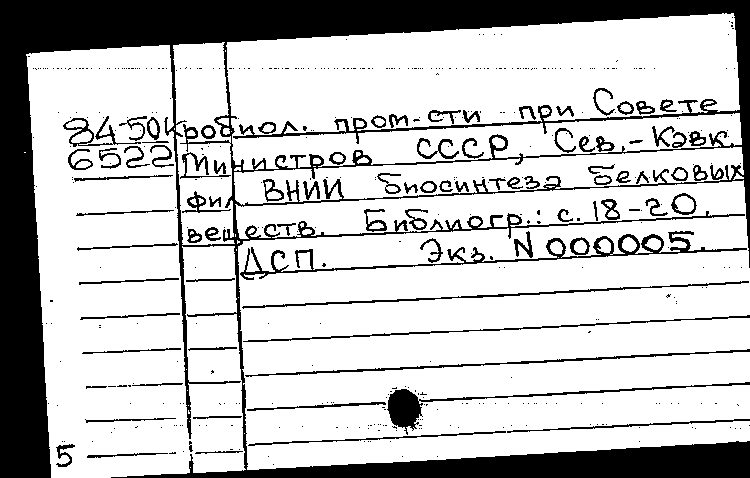 84-50кробиол. пром-сти при Совете
6522 Министров СССР, Сев.-Кавк.
фил ВНИИ биосинтеза белковых
веществ. Библиогр.: с. 18-20.
ДСП. Экз. N 000005.
5